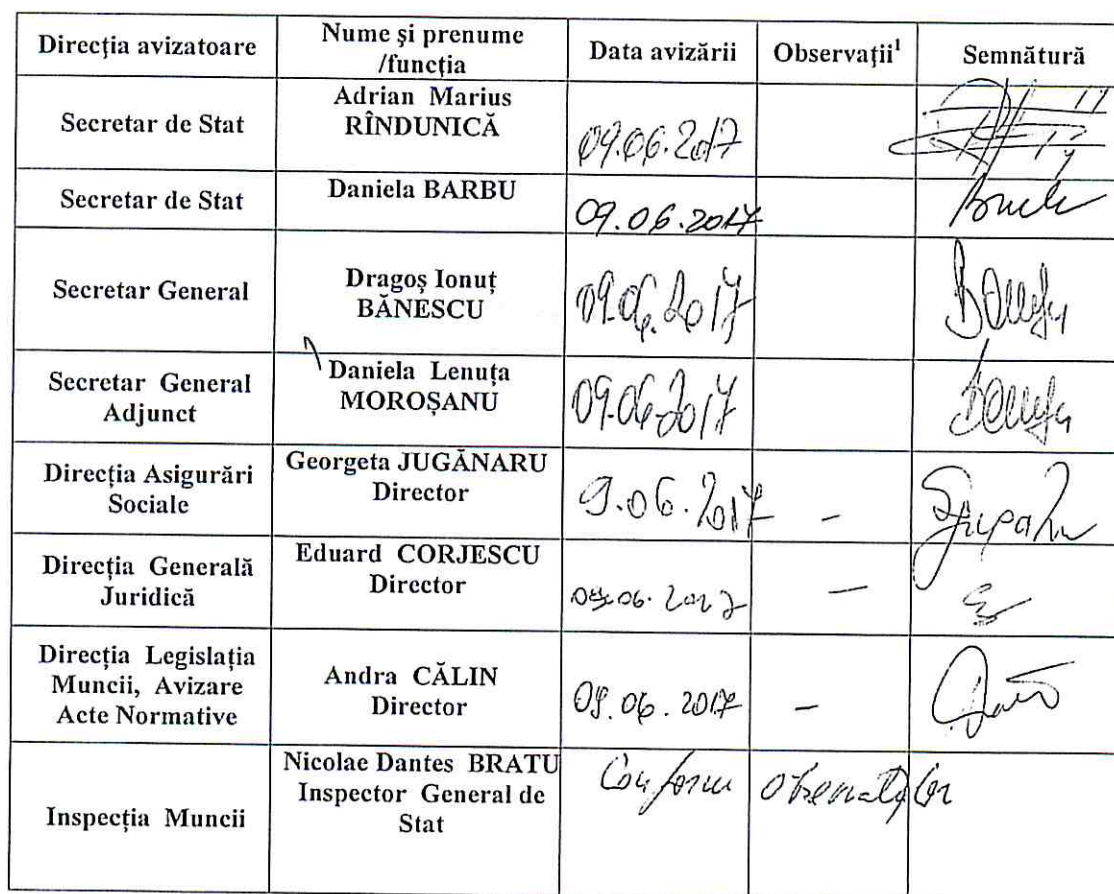 Direcția avizatoare
Nume și prenume
/funcția
Data avizării
Observații¹
Semnătură
Secretar de Stat
Adrian Marius
RÎNDUNICĂ
09.06.2017
Secretar de Stat
Daniela BARBU
09.06.2017
Secretar General
Dragoș Ionuț
BĂNESCU
09.06.2017
Secretar General
Adjunct
Daniela Lenuța
MOROȘANU
09.06.2017
Direcția Asigurări
Sociale
Georgeta JUGĂNARU
Director
9.06.2017
-
Direcția Generală
Juridică
Eduard CORJESCU
Director
-
Direcția Legislația
Muncii, Avizare
Acte Normative
Andra CĂLIN
Director
-
Inspecția Muncii
Nicolae Dantes BRATU
Inspector General de
Stat
Conform observațiilor